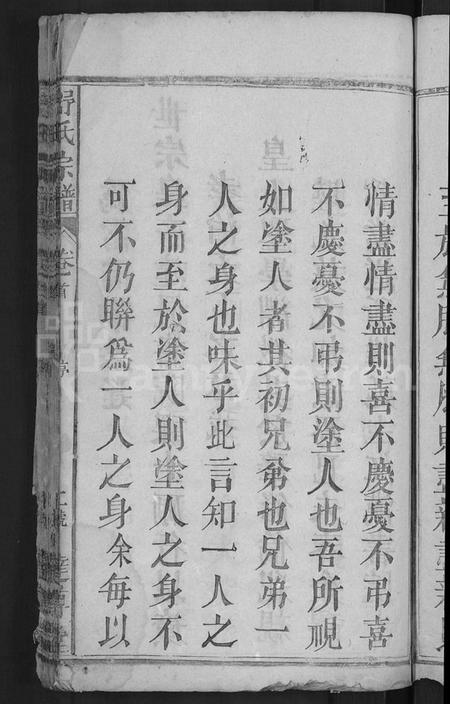 情盡情盡則喜不慶憂不弔喜
不慶憂不弔則塗人也吾所視
如塗人者其初兄弟也兄弟一
人之身也味乎此言知一人之
身而至於塗人則塗人之身不
可不仍聯爲一人之身余每以
舒氏宗譜 卷首